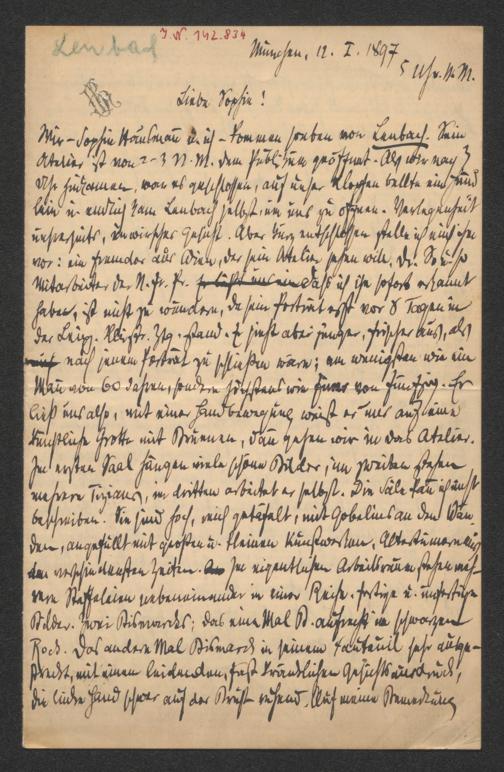 Lenbach
J.N. 142.834
München, 12. I. 1897
5 Uhr N.M.
Liebe Sophie!
Wir – Sophie Hausmann u. ich – kommen soeben von Lenbach. Sein
Atelier ist von 2–3 N.M. dem Publikum geöffnet. Als wir nach 3
Uhr hinkamen, war es geschlossen, auf unser Klopfen bellte ein Hünd-
lein u. endlich kam Lenbach selbst, um uns zu öffnen. Verlegenheit
unsrerseits, unwirsches Gesicht. Aber kurz entschlossen stelle ich mich ihm
vor: ein Fremder aus Wien, der sein Atelier sehen will, Dr. So u. so
Mitarbeiter der N. Fr. Pr. Daß ich ihn sofort erkannt
habe, ist nicht zu wundern, da sein Porträt erst vor 8 Tagen in
der Leipz. Illustr. Ztg. stand. Er sieht aber jünger, frischer aus, als
nach jenem Porträt zu schließen wäre; am wenigsten wie ein
Mann von 60 Jahren, sondern höchstens wie von Fünfzig. Er
ließ uns also, mit einer Handbewegung weist er uns auf eine
künstliche Grotte mit Brunnen, dann gehen wir in das Atelier.
Im ersten Saal hängen viele schöne Bilder, im zweiten stehen
mehrere Tizians, im dritten arbeitet er selbst. Die Säle kann ich nicht
beschreiben. Sie sind hoch, reich getäfelt, mit Gobelins an den Wän-
den, angefüllt mit großen u. kleinen Kunstwerken, Altertümern aus
den verschiedensten Zeiten. Im eigentlichen Arbeitsraum stehen meh-
rere Staffeleien nebeneinander in einer Reihe, fertige u. unfertige
Bilder. Zwei Bismarcks; das eine Mal B. aufrecht im schwarzen
Rock. Das andere Mal Bismarck in seinem Fauteuil sehr ausge-
streckt, mit einem leidenden, fast kränklichen Gesichtsausdruck,
die linke Hand schwer auf der Brust ruhend. Auf meine Bemerkung